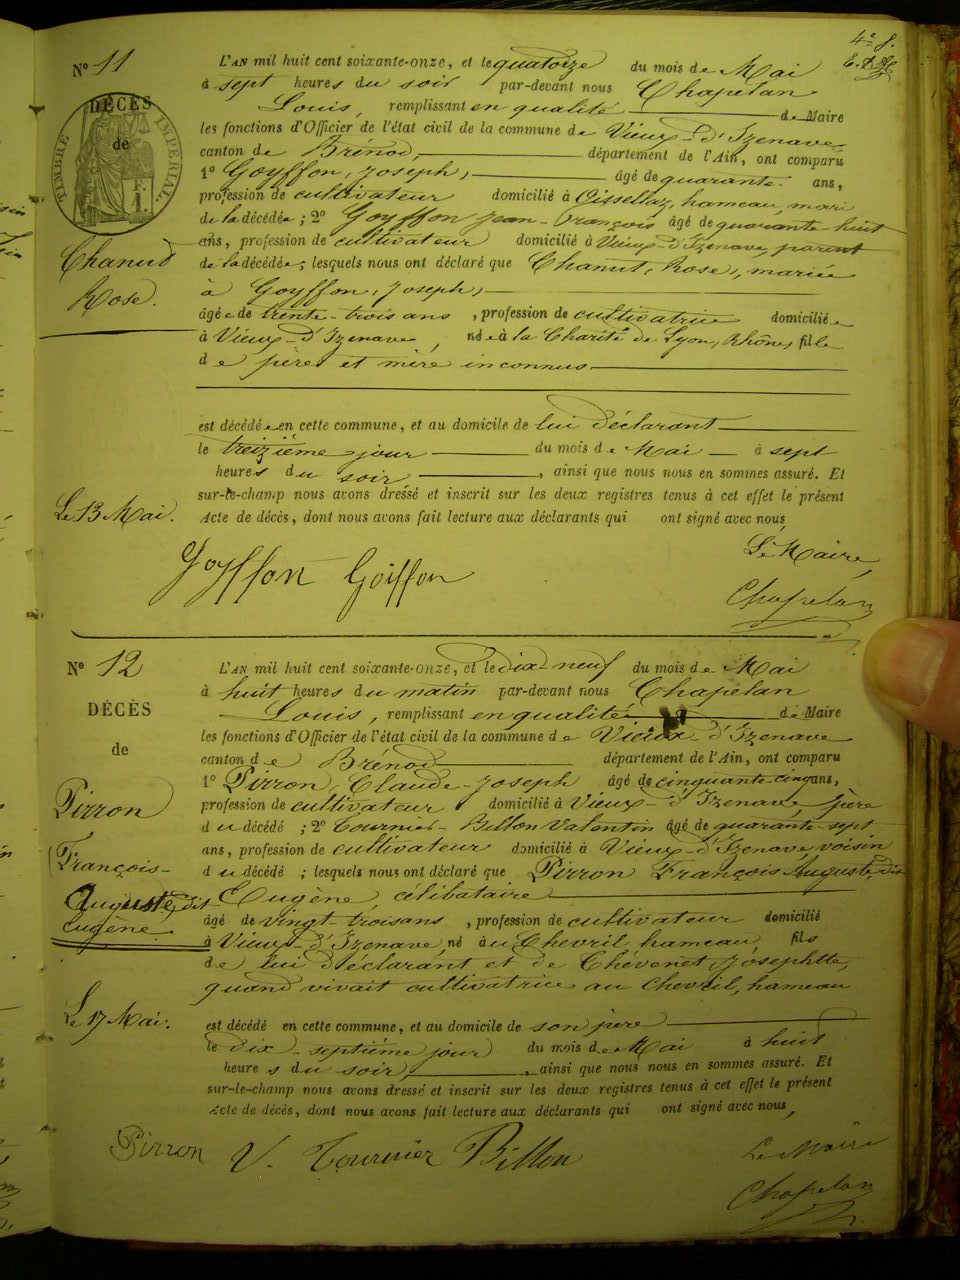 4e f.
N° 11
DÉCÈS
de
TIMBRE IMPÉRIAL.
1 F.
Chanut
Rose.
L'AN mil huit cent soixante-onze, et le quatorze du mois de Mai
à sept heures du soir par-devant nous Chapelan
Louis, remplissant en qualité de Maire
les fonctions d'Officier de l'état civil de la commune de Vieux-d'Izenave
canton de Brénod, département de l'Ain, ont comparu
1° Goyffon, Joseph, âgé de quarante ans,
profession de cultivateur domicilié à Oissellaz, hameau, mari
de la décédée ; 2° Goyffon Jean-François âgé de quarante huit
ans, profession de cultivateur domicilié à Vieux-d'Izenave, parent
de la décédée ; lesquels nous ont déclaré que Chanut, Rose, mariée
à Goyffon, Joseph,
âgée de trente-trois ans , profession de cultivatrice domiciliée
à Vieux-d'Izenave, née à la Charité de Lyon, Rhône, fille
de père et mère inconnus
est décédée en cette commune, et au domicile de lui déclarant
le treizième jour du mois de Mai à sept
heures du soir , ainsi que nous nous en sommes assuré. Et
sur-le-champ nous avons dressé et inscrit sur les deux registres tenus à cet effet le présent
Le 13 Mai.
Acte de décès, dont nous avons fait lecture aux déclarants qui ont signé avec nous,
Le Maire,
Goyffon Goiffon
Chapelan
N° 12
DÉCÈS
de
Pirron
François-
Auguste, dit
Eugène
L'AN mil huit cent soixante-onze, et le dix-neuf du mois de Mai
à huit heures du matin par-devant nous Chapelan
Louis, remplissant en qualité de Maire
les fonctions d'Officier de l'état civil de la commune de Vieux-d'Izenave
canton de Brénod département de l'Ain, ont comparu
1° Pirron, Claude-Joseph âgé de cinquante-cinq ans,
profession de cultivateur domicilié à Vieux-d'Izenave, père
du décédé ; 2° Tournier-Billon Valentin âgé de quarante-sept
ans, profession de cultivateur domicilié à Vieux-d'Izenave, voisin
du décédé ; lesquels nous ont déclaré que Pirron François-Auguste dit
Eugène, célibataire
âgé de vingt trois ans , profession de cultivateur domicilié
à Vieux-d'Izenave, né au Chevril, hameau, fils
de lui déclarant et de Chévenet, Josephtte,
quand vivait cultivatrice au Chevril, hameau
Le 17 Mai.
est décédé en cette commune, et au domicile de son père
le dix-septième jour du mois de Mai à huit
heures du soir , ainsi que nous nous en sommes assuré. Et
sur-le-champ nous avons dressé et inscrit sur les deux registres tenus à cet effet le présent
Acte de décès, dont nous avons fait lecture aux déclarants qui ont signé avec nous,
Pirron V. Tournier Billon
Le Maire
Chapelan